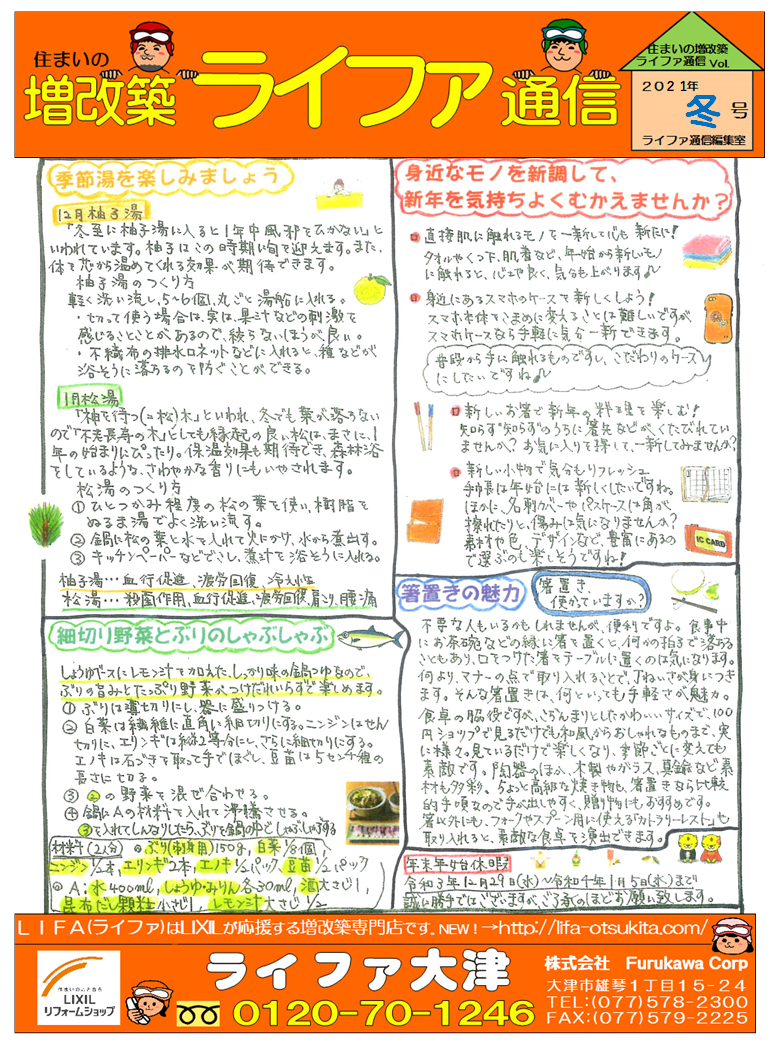 住まいの
増改築 ライファ 通信
住まいの増改築
ライファ通信 Vol.
2021年
冬 号
ライファ通信編集室
季節湯を楽しみましょう
12月柚子湯
「冬至に柚子湯に入ると1年中風邪をひかない」と
いわれています。柚子はこの時期に旬を迎えます。また、
体を芯から温めてくれる効果が期待できます。
柚子湯のつくり方
軽く洗い流し、5～6個、丸ごと湯船に入れる。
・切って使う場合は、実は、果汁などの刺激を
感じることがあるので、絞らないほうが良い。
・不織布の排水口ネットなどに入れると、種などが
浴そうに落ちるのを防ぐことができる。
1月松湯
「神を待つ(=松)木」といわれ、冬でも葉が落ちない
ので「不老長寿の木」としても縁起の良い松は、まさに、1
年の始まりにぴったり。保温効果も期待でき、森林浴
をしているような、さわやかな香りにもいやされます。
松湯のつくり方
① ひとつかみ程度の松の葉を使い、樹脂を
ぬるま湯でよく洗い流す。
② 鍋に松の葉と水を入れて火にかけ、水から煮出す。
③ キッチンペーパーなどでこし、煮汁を浴そうに入れる。
柚子湯…血行促進、疲労回復、冷え性
松湯…殺菌作用、血行促進、疲労回復、肩こり、腰痛
細切り野菜とぶりのしゃぶしゃぶ
しょうゆベースにレモン汁を加えた、しっかり味の鍋つゆなので、
ぶりの旨みとたっぷり野菜がつけだれいらずで楽しめます。
① ぶりは薄切りにし、器に盛りつける。
② 白菜は繊維に直角に細切りにする。ニンジンはせん
切りに、エリンギは縦2等分にし、さらに細切りにする。
エノキは石づきを取って手でほぐし、豆苗は5センチ程の
長さに切る。
③ ②の野菜を混ぜ合わせる。
④ 鍋にAの材料を入れて沸騰させる。
③を入れてしんなりしたら、ぶりを鍋の中でしゃぶしゃぶする
材料(2人分) ◎ぶり(刺身用)150g、白菜1/8個、
ニンジン1/2本、エリンギ2本、エノキ1/2パック、豆苗1/2パック
◎A:水400ml、しょうゆ・みりん各30ml、酒大さじ1、
昆布だし顆粒小さじ1、レモン汁大さじ1/2
身近なモノを新調して、
新年を気持ちよくむかえませんか?
直接肌に触れるモノを一新してじも新たに!
タオルやくつ下、肌着など、年始から新しいモノ
に触れると、心よや良く、気分も上がります♪
身近にあるスマホのケースを新しくしよう!
スマホ本体をこまめに変えることは難しいですが
スマホケースなら手軽に気分一新できます。
普段から手に触れるものですし、こだわりのケース
にしたいですね♪
新しいお箸で新年の料理を楽しむ!
知らず知らずのうちに箸先などが、くたびれてい
ませんか? お気に入りを探して、一新してみませんか?
新しい小物で気分もリフレッシュ
手帳は年始には新しくしたいですね。
ほかに、名刺カバーやパスケースは角が
擦れたりと、傷みは気になりませんか?
素材や色、デザインなど、豊富にあるの
で選ぶのも楽しそうですね!
IC CARD
箸置きの魅力
箸置き、
使かっていますか?
不要な人もいるかもしれませんが、便利ですよ。食事中
にお茶碗などの縁に箸を置くと、何かの拍子で落ちる
こともあり、口をつけた箸をテーブルに置くのは気になります。
何より、マナーの点で取り入れることで、ていねいさが身につき
ます。そんな箸置きは、何といっても手軽さが魅力。
食卓の脇役ですが、こぢんまりとしたかわいいサイズで、100
円ショップで見るだけでも和風からおしゃれなものまで、実
に様々。見ているだけで楽しくなり、季節ごとに変えても
素敵です。陶器のほか、木製やガラス、真鍮など素
材も多彩。ちょと高級な焼き物も、箸置きなら比較
的手頃なので手が出しやすく、贈り物にもおすすめです。
箸以外にも、フォークやスプーン用に使える「カトラリーレスト」も
取り入れると、素敵な食卓を演出できます。
年末年始休暇
令和3年12月29日(水)～令和4年1月5日(水)まで
誠に勝手ではございますが、ご了承のほどお願い致します。
LIFA(ライファ)はLIXILが応援する増改築専門店です。NEW!→http://lifa-otsukita.com/
住まいのことなら
LIXIL
リフォームショップ
ライファ大津
0120-70-1246
株式会社 Furukawa Corp
大津市雄琴1丁目15-24
TEL:(077)578-2300
FAX:(077)579-2225